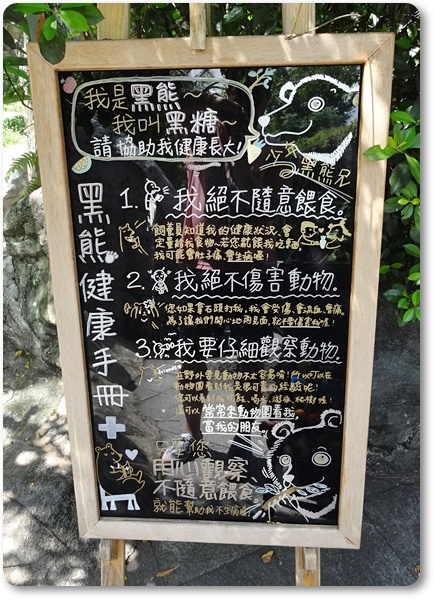 我是黑熊~
我叫黑糖~
請協助我健康長大!
黑熊兄
黑熊健康手冊
1. 我絕不隨意餵食。
飼養員知道我的健康狀況,會
定量給我食物。若您餵我吃麵,
我可能會肚子痛、會生病喔!
2. 我絕不傷害動物。
您如果拿石頭打我,我會受傷、會流血、會痛。
為了讓我們開心地再見面,就不要傷害我喔!
3. 我要仔細觀察動物。
friends
在野外要見動物不太容易喔!所以可以在
動物園看到我是很可貴的經驗呢!
您可以看到我吃飯、喝水、游泳、爬樹喔!
還可以常常來動物園看我,
當我的朋友。
只要您
用心觀察
不隨意餵食
就能幫助我不生病